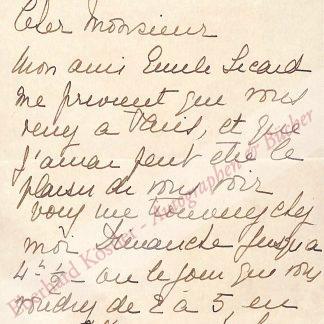 Cher Monsieur
Mon ami Emile Sicard
me previent que vous
venez a Paris, et que
j'aurai peut etre le
plaisir de vous voir
vous me trouverez chez
moi Dimanche jusqu'a
4h ½ ou le jour que vous
voudrez de 2 a 5, en
Eberhard Köstler - Autographen & Bücher